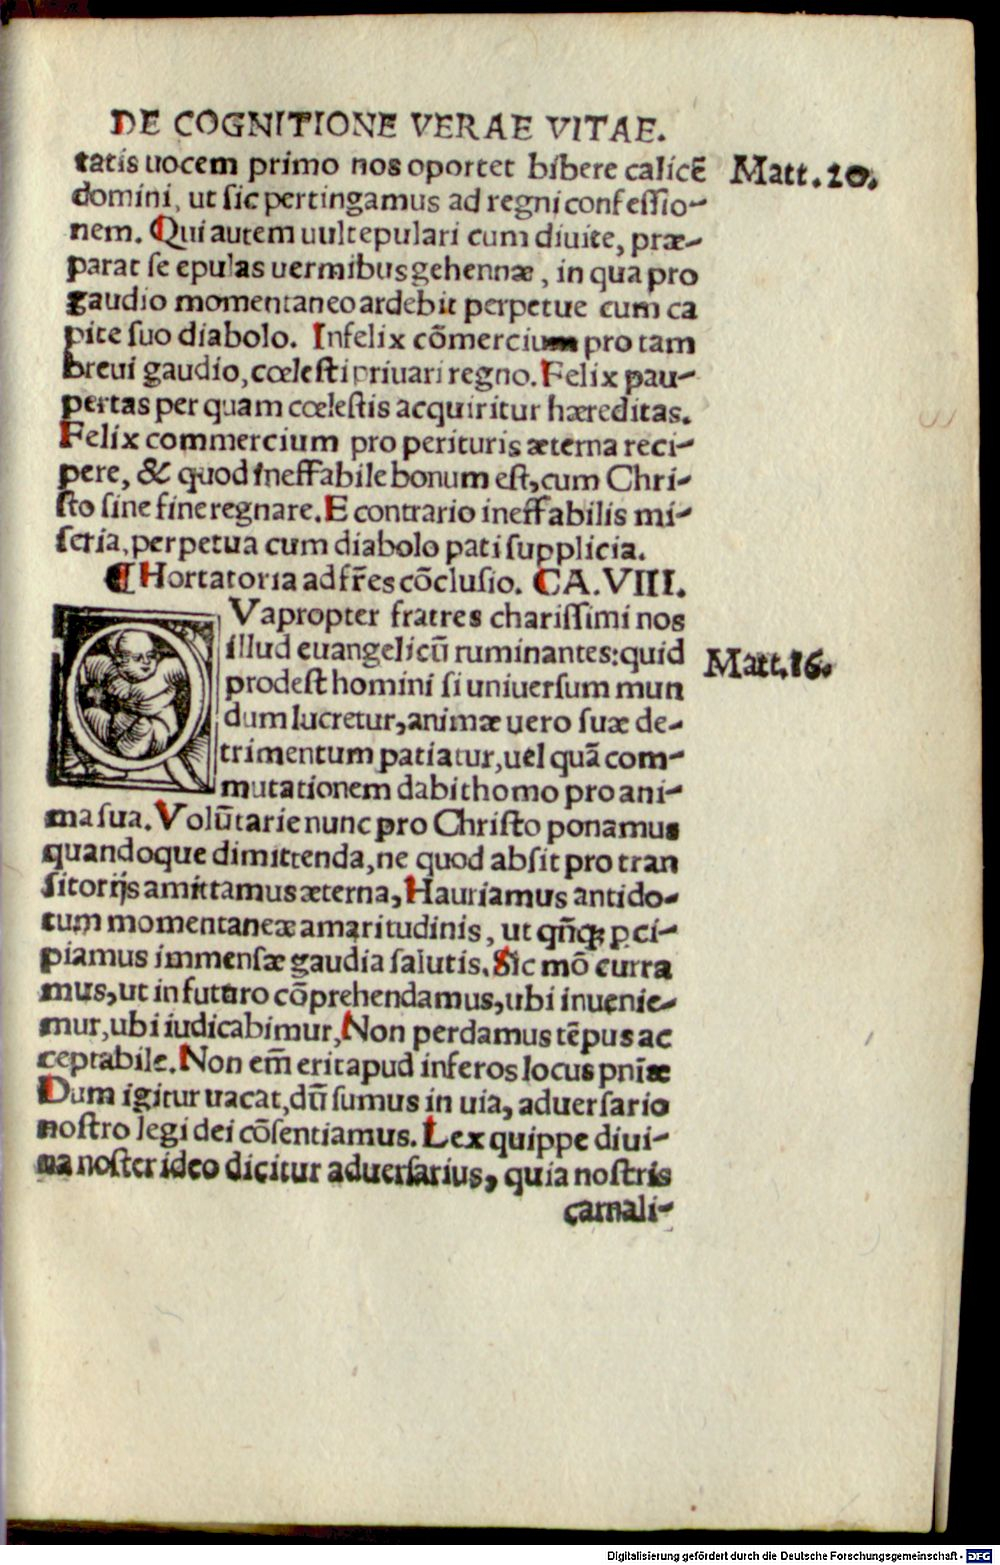 DE COGNITIONE VERAE VITAE.
tatis uocem primo nos oportet bibere calicē Matt.20.
domini, ut sic pertingamus ad regni confessio-
nem. Qui autem uult epulari cum diuite, præ-
parat se epulas uermibus gehennæ, in qua pro
gaudio momentaneo ardebit perpetue cum ca
pite suo diabolo. Infelix cōmercium pro tam
breui gaudio, cœlesti priuari regno. Felix pau-
pertas per quam cœlestis acquiritur hæreditas.
Felix commercium pro perituris æterna reci-
pere, & quod ineffabile bonum est, cum Chri-
sto sine fine regnare. E contrario ineffabilis mi-
seria, perpetua cum diabolo pati supplicia.
¶ Hortatoria ad fr̄es cōclusio. CA.VIII.
QVapropter fratres charissimi nos
illud euangelicū ruminantes: quid Matt.16.
prodest homini si uniuersum mun
dum lucretur, animæ uero suæ de-
trimentum patiatur, uel quā com-
mutationem dabit homo pro ani-
ma sua. Volūtarie nunc pro Christo ponamus
quandoque dimittenda, ne quod absit pro tran
sitorijs amittamus æterna, Hauriamus antido-
tum momentaneæ amaritudinis, ut qn̄qꝫ ꝑci-
piamus immensæ gaudia salutis. Sic mō curra
mus, ut in futuro cōprehendamus, ubi inuenie-
mur, ubi iudicabimur, Non perdamus tēpus ac
ceptabile. Non em̄ erit apud inferos locus pnīæ
Dum igitur uacat, dū sumus in uia, aduersario
nostro legi dei cōsentiamus. Lex quippe diui-
na noster ideo dicitur aduersarius, quia nostris
carnali-
Digitalisierung gefördert durch die Deutsche Forschungsgemeinschaft - DFG